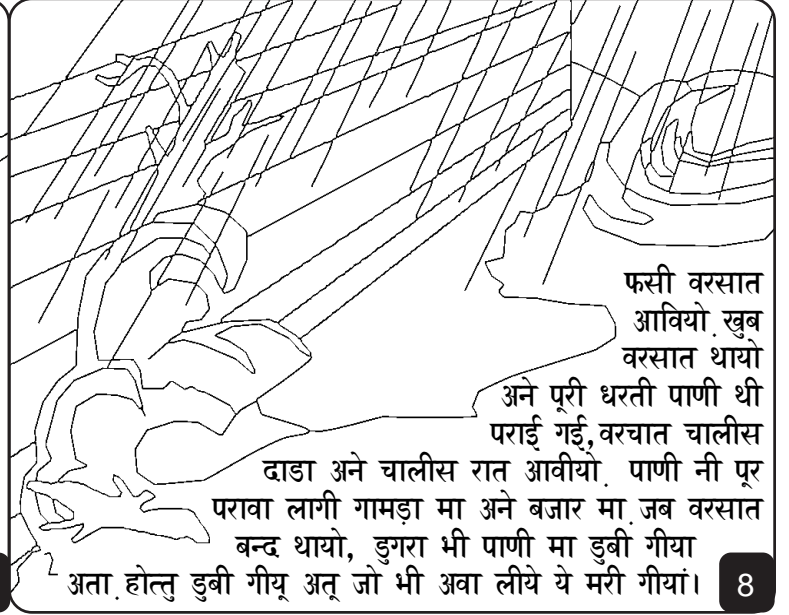 फसी वरसात
आवियो. खुब
वरसात थायो
अने पूरी धरती पाणी थी
पराई गई, वरचात चालीस
दाडा अने चालीस रात आवीयो. पाणी नी पूर
परावा लागी गामड़ा मा अने बजार मा. जब वरसात
बन्द थायो, डुगरा भी पाणी मा डुबी गीया
अता. होत्तु डुबी गीयू अतू जो भी अवा लीये ये मरी गीयां।
8